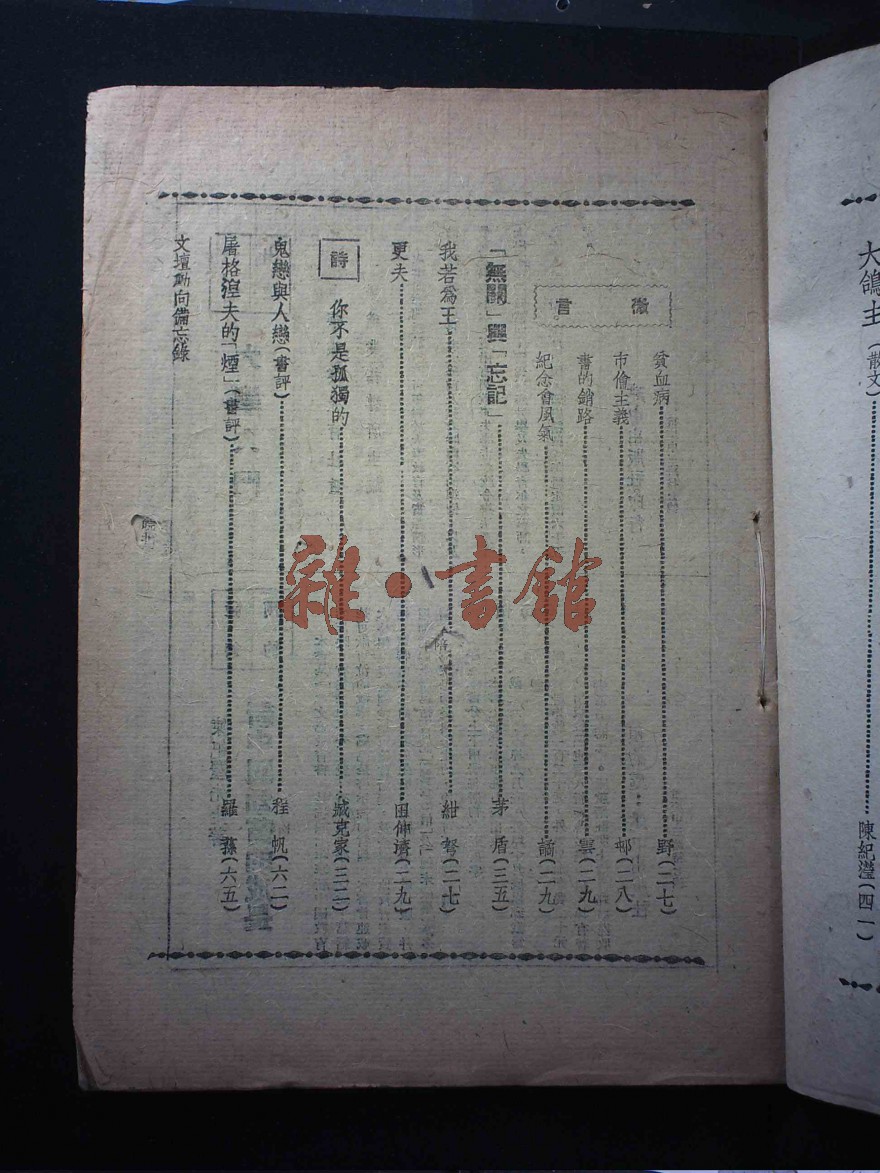 大鴿主(散文)陳紀瀅(四一)
微言
貧血病 野(二七)
市儈主義 邨(二八)
書的銷路 雲(二九)
紀念會風氣 譎(二九)
「無關」與「忘記」 茅盾(三五)
我若為王 紺弩(二七)
更夫 田仲濟(二九)
詩
你不是孤獨的 臧克家(三二)
鬼戀與人戀(書評) 程帆(六二)
屠格湼夫的「煙」(書評) 羅蓀(六五)
文壇動向備忘錄
雜·書館